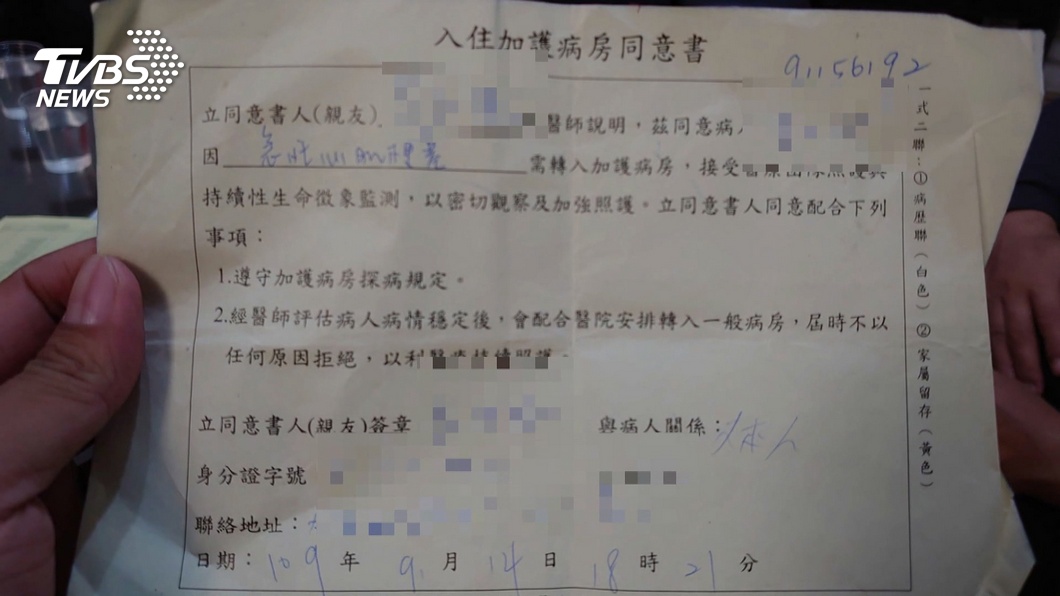 TVBS
NEWS
入住加護病房同意書
91156192
立同意書人(親友)
醫師說明，茲同意病人
因 急性心肌梗塞 需轉入加護病房，接受醫療團隊照護與
持續性生命徵象監測，以密切觀察及加強照護。立同意書人同意配合下列
事項：
1.遵守加護病房探病規定。
2.經醫師評估病人病情穩定後，會配合醫院安排轉入一般病房，屆時不以
任何原因拒絕，以利醫療持續照護。
立同意書人(親友)簽章
與病人關係：本人
身分證字號
聯絡地址：
日期：109年9月14日18時21分
一式二聯：①病歷聯（白色）②家屬留存（黃色）